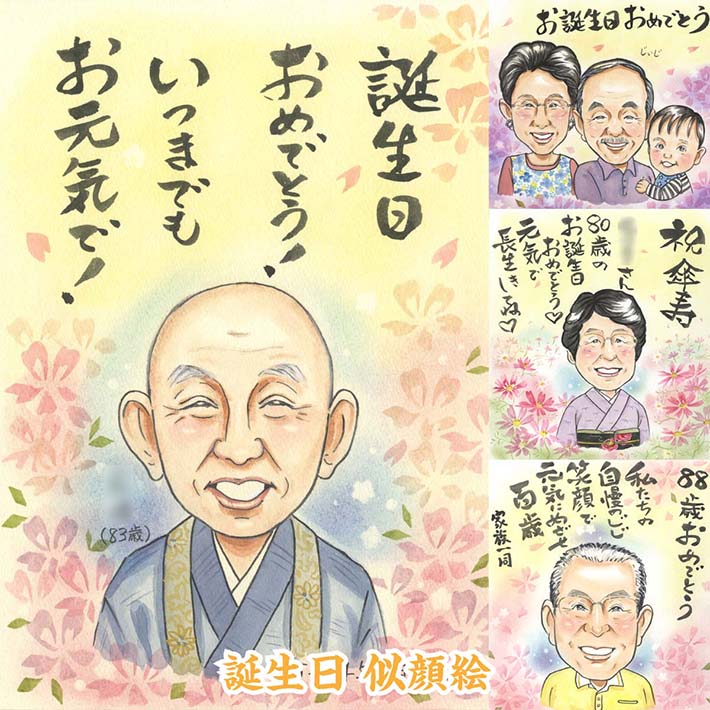 誕生日
おめでとう!
いつまでも
お元気で!
(83歳)
お誕生日おめでとう
じぃじ
祝傘寿
さん
80歳の
お誕生日
おめでとう♡
元気で
長生きしてね♡
88歳おめでとう
私たちの
自慢のじじ
笑顔で
元気にめざせ
百歳
家族一同
誕生日 似顔絵